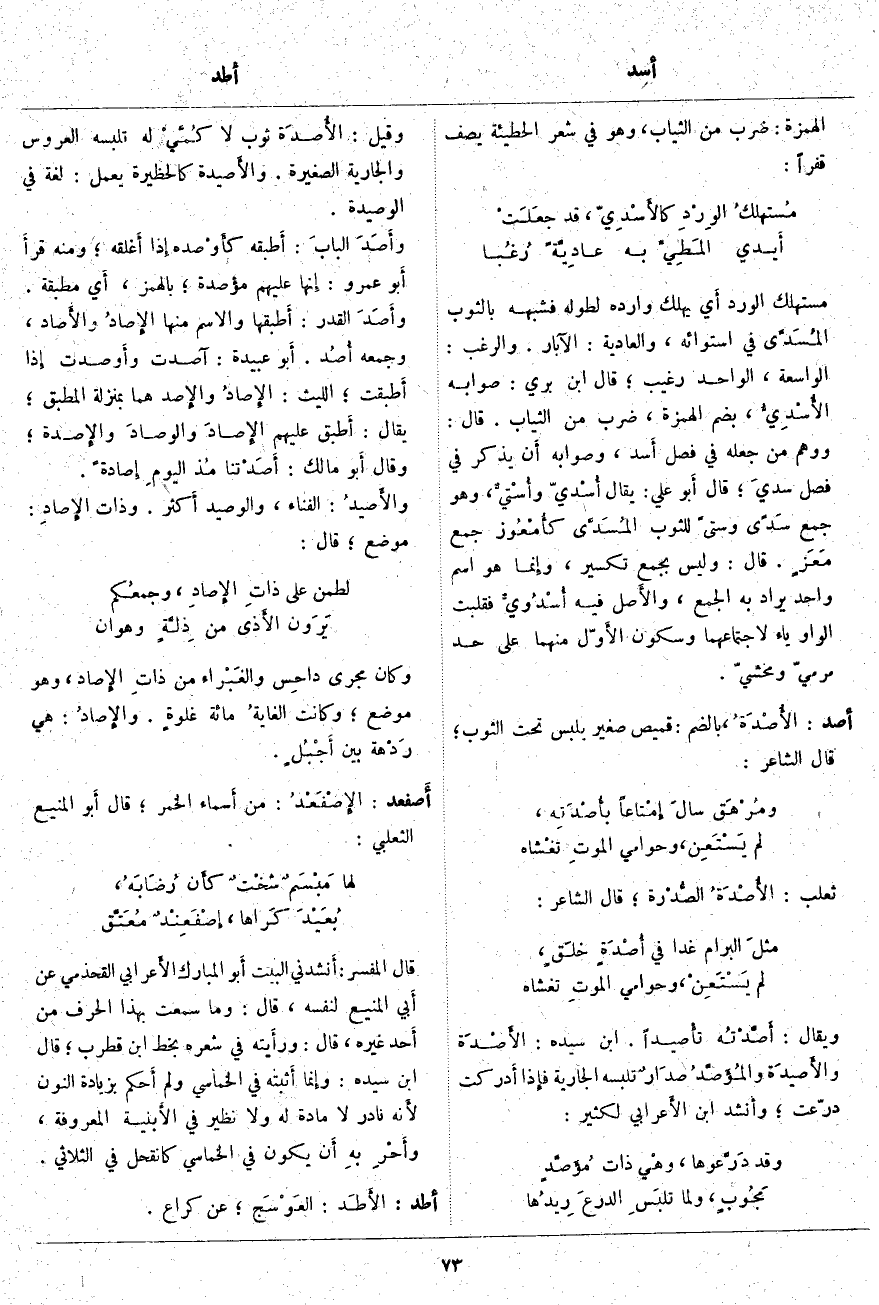 أسد
أطد
الهمزة : ضرب من الثياب، وهو في شعر الحطيئة يصف
قفراً :
مُستهلكُ الوِرْدِ كالأسْديّ ، قد جعلَتْ
أيدي المَطيّ به عاديةً رُغُبا
مستهلك الورد أي يهلك وارده لطوله فشبهه بالثوب
المُسَدَّى في استوائه ، والعادية : الآبار . والرغب :
الواسعة ، الواحد رغيب ؛ قال ابن بري : صوابه
الأُسْديُّ ، بضم الهمزة ، ضرب من الثياب . قال :
ووهم من جعله في فصل أسد ، وصوابه أن يذكر في
فصل سديَ ؛ قال أبو علي : يقال أُسْديّ وأُسْتيّ ، وهو
جمع سَدًى وستىً للثوب المُسَدَّى كأُمْعُوز جمع
مَعَزٍ . قال : وليس بجمع تكسير ، وإنما هو اسم
واحد يراد به الجمع ، والأصل فيه أُسْدُويٌ فقلبت
الواو ياء لاجتماعهما وسكون الأوّل منهما على حد
مرميّ ومخشيّ .
أصد : الأُصْدَةُ ، بالضم : قميص صغير يلبس تحت الثوب ؛
قال الشاعر :
ومُرْهَقٍ سالَ إمْتاعاً بأُصْدَتِه ،
لم يَسْتَعِنْ ، وحوامي الموتِ تغْشاه
ثعلب : الأُصْدَةُ الصُّدْرة ؛ قال الشاعر :
مثلَ البرام غدا في أُصْدَةٍ خلَقٍ ،
لم يَسْتَعِنْ ، وحوامي الموتِ تغشاه
ويقال : أصَّدْتُه تأصيداً . ابن سيده : الأُصْدَة
والأَصيدَة والمُؤَصَّدُ صدارٌ تلبسه الجارية فإذا أدركت
درّعت ؛ وأنشد ابن الأعرابي لكثير :
وقد دَرَّعوها ، وهْيَ ذات مُؤَصَّدٍ
مَجُوبٍ ، ولما تلبَسِ الدرعَ رِيدُها
وقيل : الأُصدَة ثوب لا كُمَّيْ له تلبسه العروس
والجارية الصغيرة . والأَصيدة كالحظيرة يعمل : لغة في
الوصيدة .
وأصَدَ البابَ : أطبقه كأوْصده إذا أغلقه ؛ ومنه قرأ
أبو عمرو : إنها عليهم مؤصدة ؛ بالهمز ، أي مطبقة .
وأصَدَ القدر : أطبقها والاسم منها الإصادُ والأَصاد ،
وجمعه أُصُد . أبو عبيدة : آصدت وأوصدت إذا
أطبقت ؛ الليث : الإصادُ والإصد هما بمنزلة المطبق ؛
يقال : أطبق عليهم الإصادَ والوصادَ والإصدة ؛
وقال أبو مالك : أصَدْتنا مُذ اليومِ إصادةً .
والأَصيدُ : الفناء ، والوصيد أكثر . وذات الإصادِ :
موضع ؛ قال :
لطمن على ذاتِ الإصادِ ، وجمعُكم
يَرَون الأذى من ذِلةٍ وهوان
وكان مجرى داحِس والغَبْراء من ذاتِ الإصاد ، وهو
موضع ؛ وكانت الغايةُ مائة غلوةٍ . والإصادُ : هي
رَدْهة بين أَجبُلٍ .
أصفعد : الإصْفَعَنْدُ : من أسماء الخمر ؛ قال أبو المنيع
الثعلبي :
لها مَبْسَمٌ شخْتٌ كأن رُضابَهُ ،
بُعَيْدَ كَراها ، إصْفَعِنْدٌ مُعَتَّق
قال المفسر : أنشدني البيت أبو المبارك الأعرابي القحذمي عن
أبي المنيع لنفسه ، قال : وما سمعت بهذا الحرف من
أحد غيره ، قال : ورأيته في شعره بخط ابن قطرب ؛ قال
ابن سيده : وإنما أثبته في الخماسي ولم أحكم بزيادة النون
لأنه نادر لا مادة له ولا نظير في الأبنية المعروفة ،
وأَحْرِ بِهِ أن يكون في الخماسي كانقحل في الثلاثي .
أطد : الأَطَد : العَوْسَج ؛ عن كراع .
٧٣